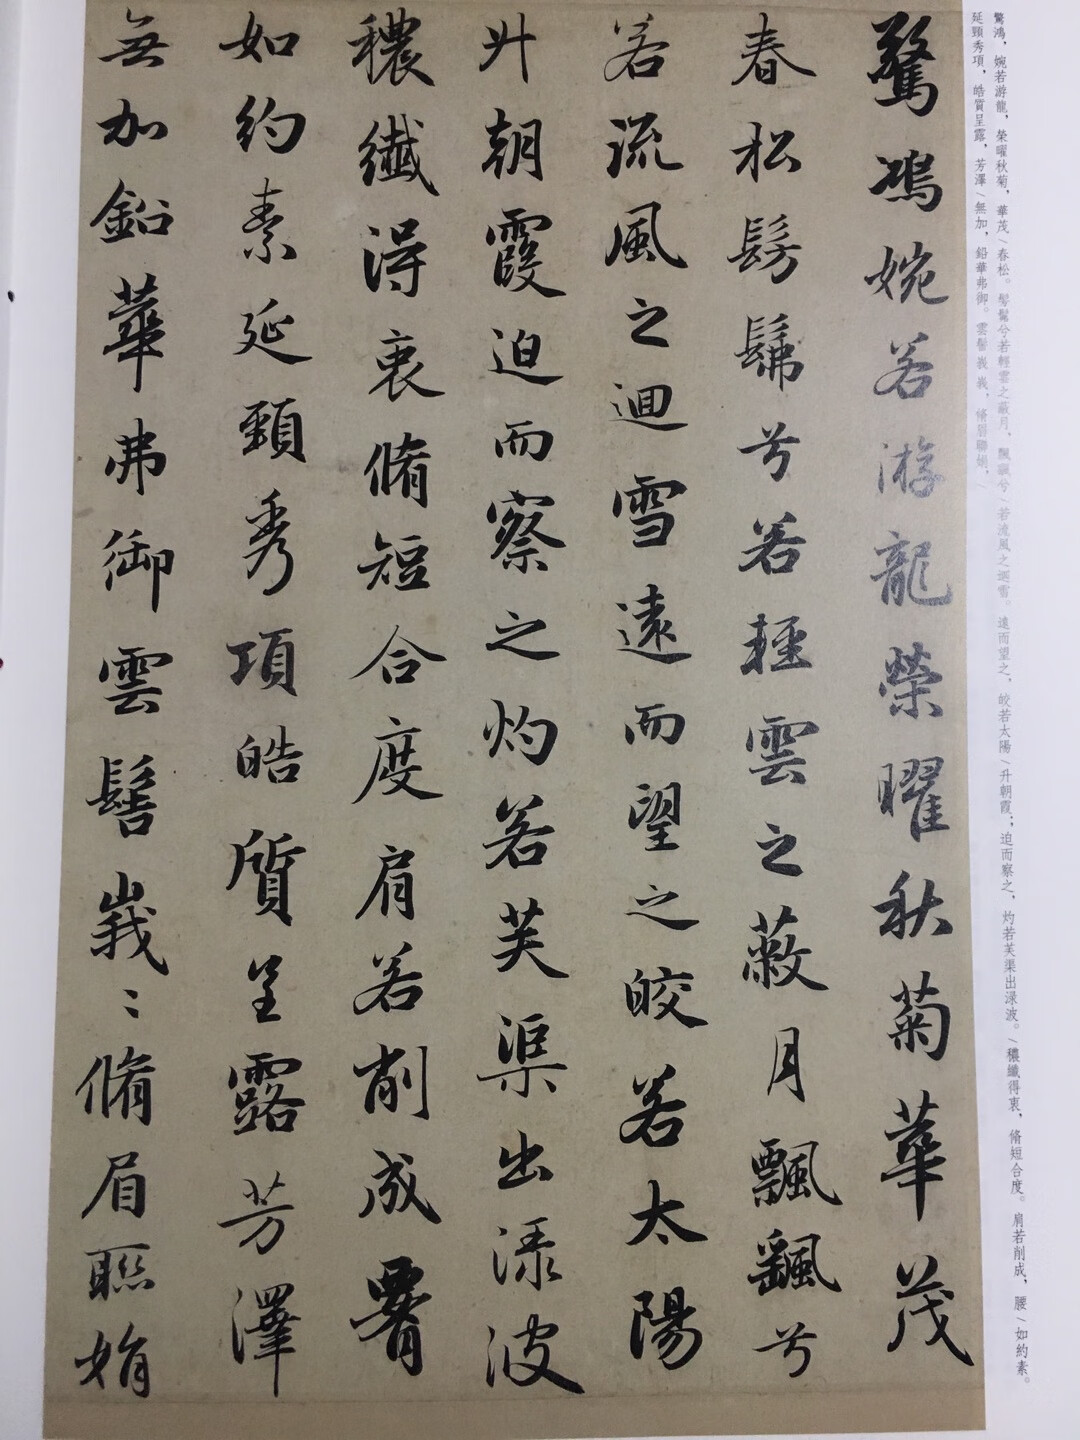 驚鴻婉若游龍榮曜秋菊華茂
春松髣髴兮若輕雲之蔽月飄飖兮
若流風之迴雪遠而望之皎若太陽
升朝霞迫而察之灼若芙渠出渌波
穠纖得衷脩短合度肩若削成腰
如約素延頸秀項皓質呈露芳澤
無加鉛華弗御雲髻峩〻脩眉聯娟
驚鴻，婉若游龍，榮曜秋菊，華茂／春松。髣髴兮若輕雲之蔽月，飄飖兮／若流風之迴雪。遠而望之，皎若太陽／升朝霞；迫而察之，灼若芙渠出渌波。／穠纖得衷，脩短合度。肩若削成，腰／如約素。
延頸秀項，皓質呈露，芳澤／無加，鉛華弗御。雲髻峩峩，脩眉聯娟，／